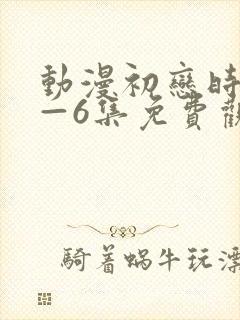 動漫初戀時
—6集免費觀
騎着蝸牛玩漂